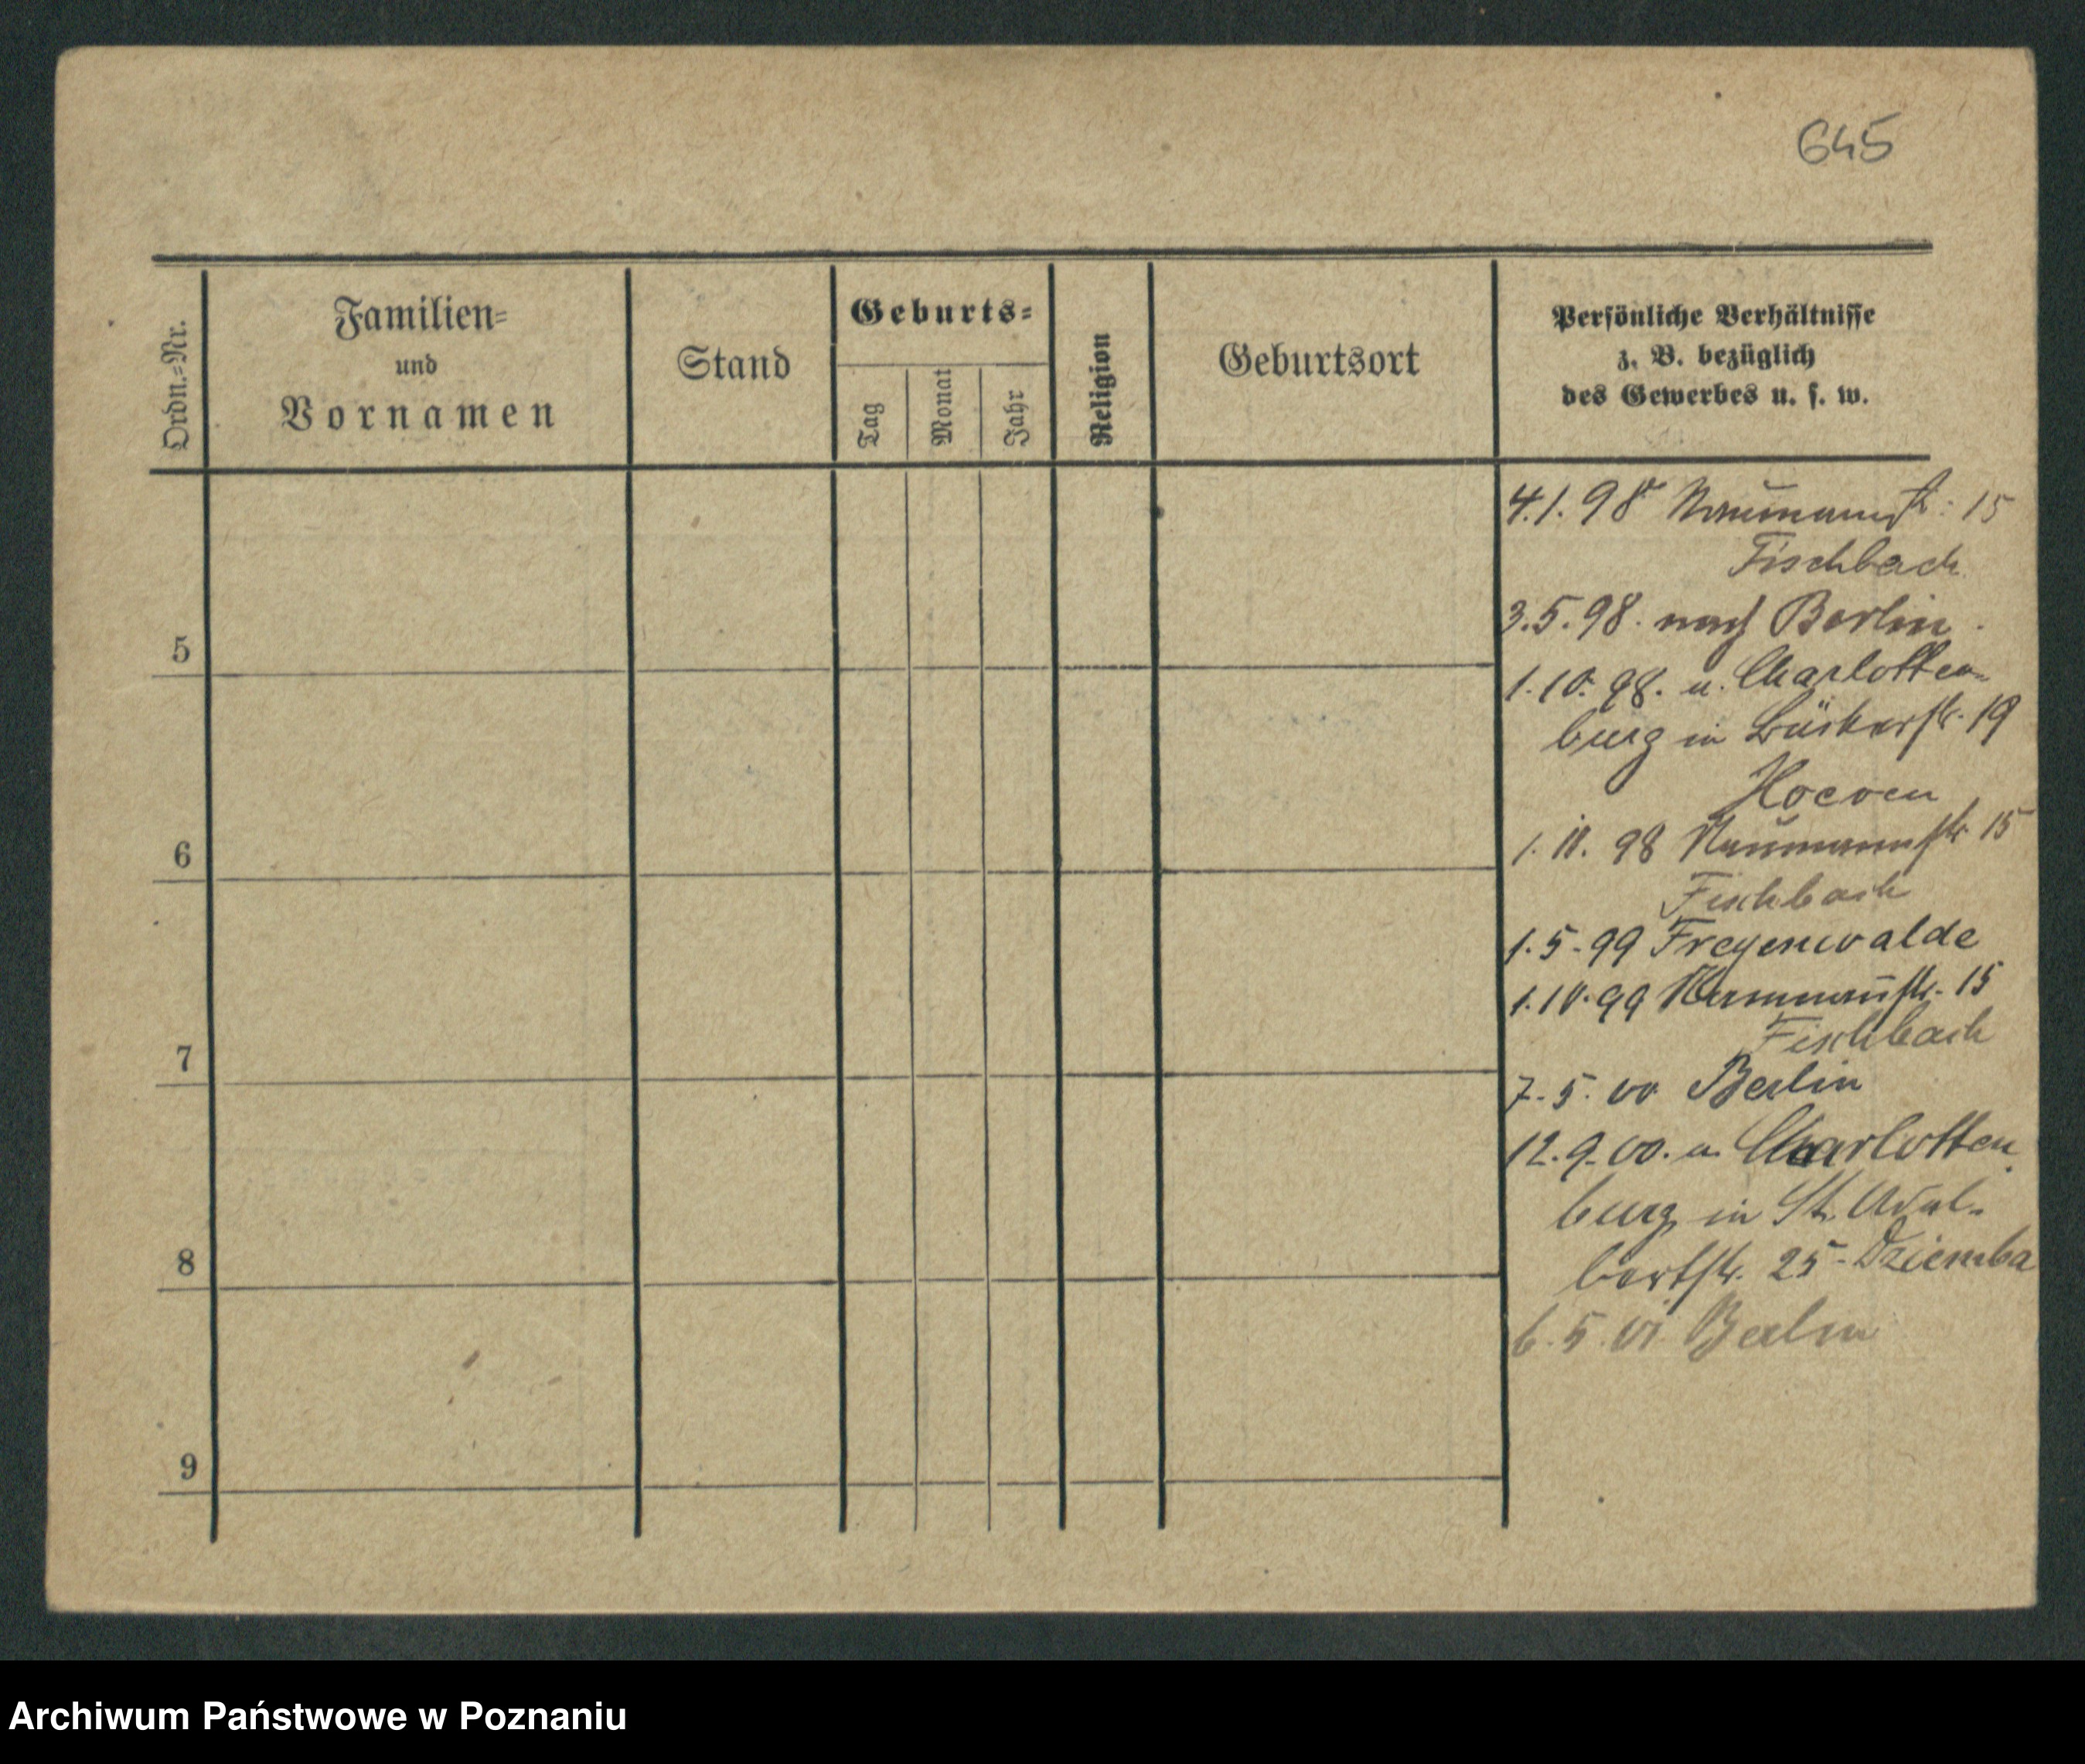 645
Ordn.-Nr.
Familien-
und
Vornamen
Stand
Geburts-
Tag
Monat
Jahr
Religion
Geburtsort
Persönliche Verhältnisse
z. B. bezüglich
des Gewerbes u. s. w.
4.1.98 Naumannstr. 15
Fischbach
3.5.98. nach Berlin.
1.10.98. u. Charlotten-
burg in Bäckerstr. 19
Hoeven
1.11.98 Naumannstr. 15
Fischbach
1.5.99 Freyenwalde
1.10.99 Naumannstr. 15
Fischbach
7.5.00 Berlin
12.9.00. a. Charlotten
burg in St. Adal-
bertstr. 25 - Dziemba
6.5.01 Berlin
5
6
7
8
9
Archiwum Państwowe w Poznaniu